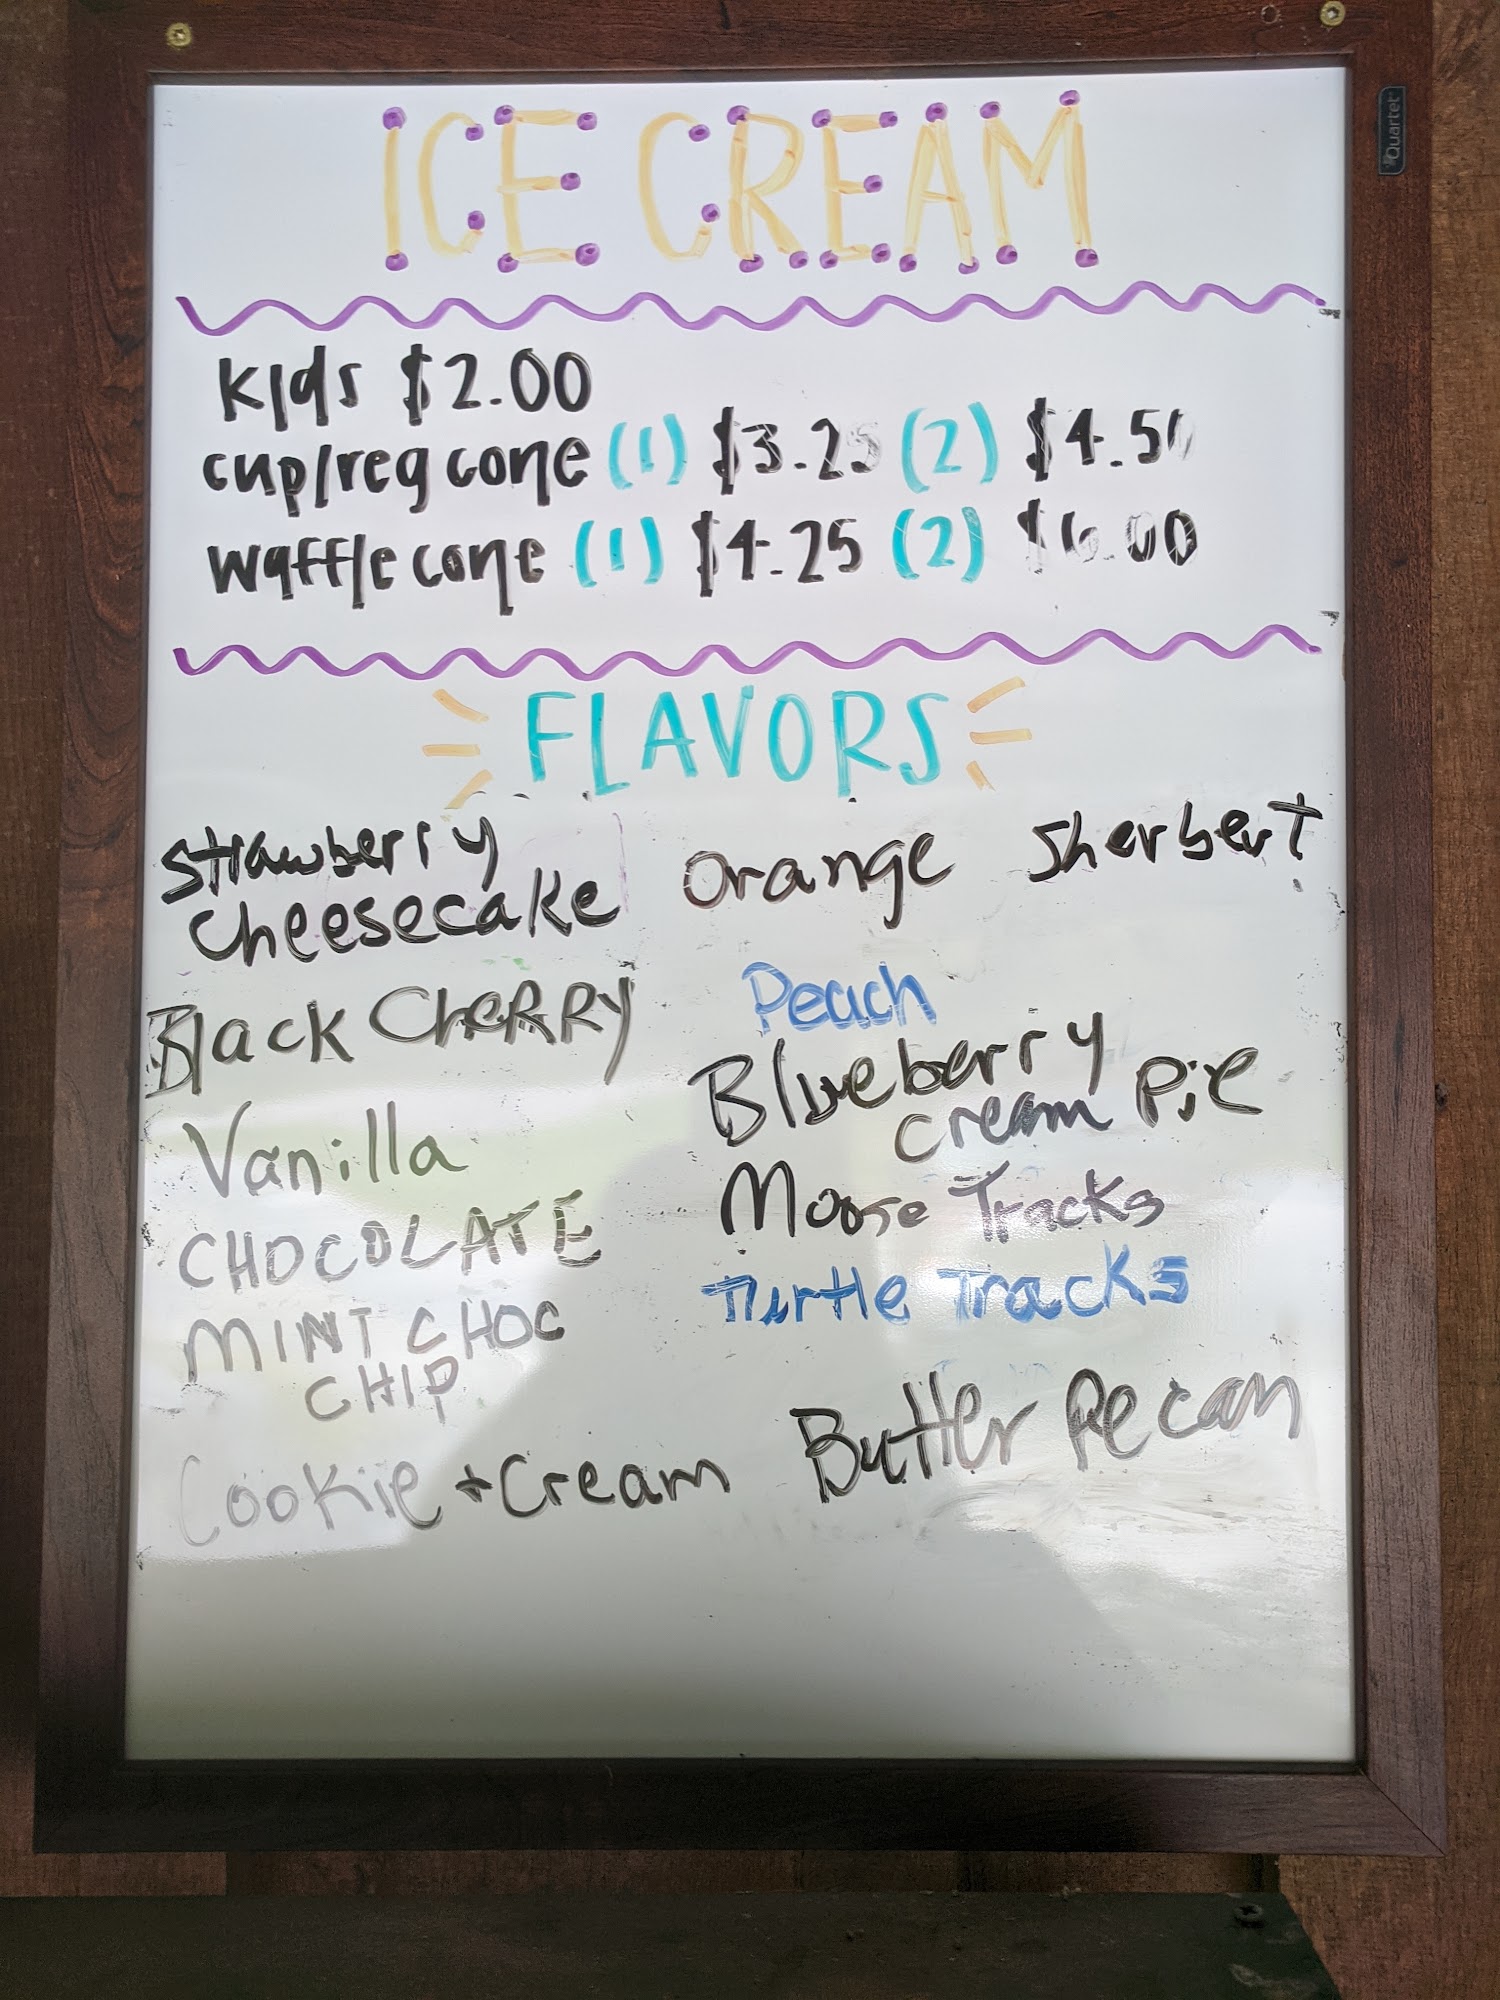 ICE CREAM
Quartet
kids $2.00
cup/reg cone (1) $3.25 (2) $4.50
waffle cone (1) $4.25 (2) $6.00
FLAVORS
Strawberry
Cheesecake
Black CheRRy
Vanilla
CHOCOLATE
MINT CHOC
CHIP
Cookie + Cream
Orange Sherbert
Peach
Blueberry
Cream Pie
Moose Tracks
Turtle Tracks
Butter Pecan